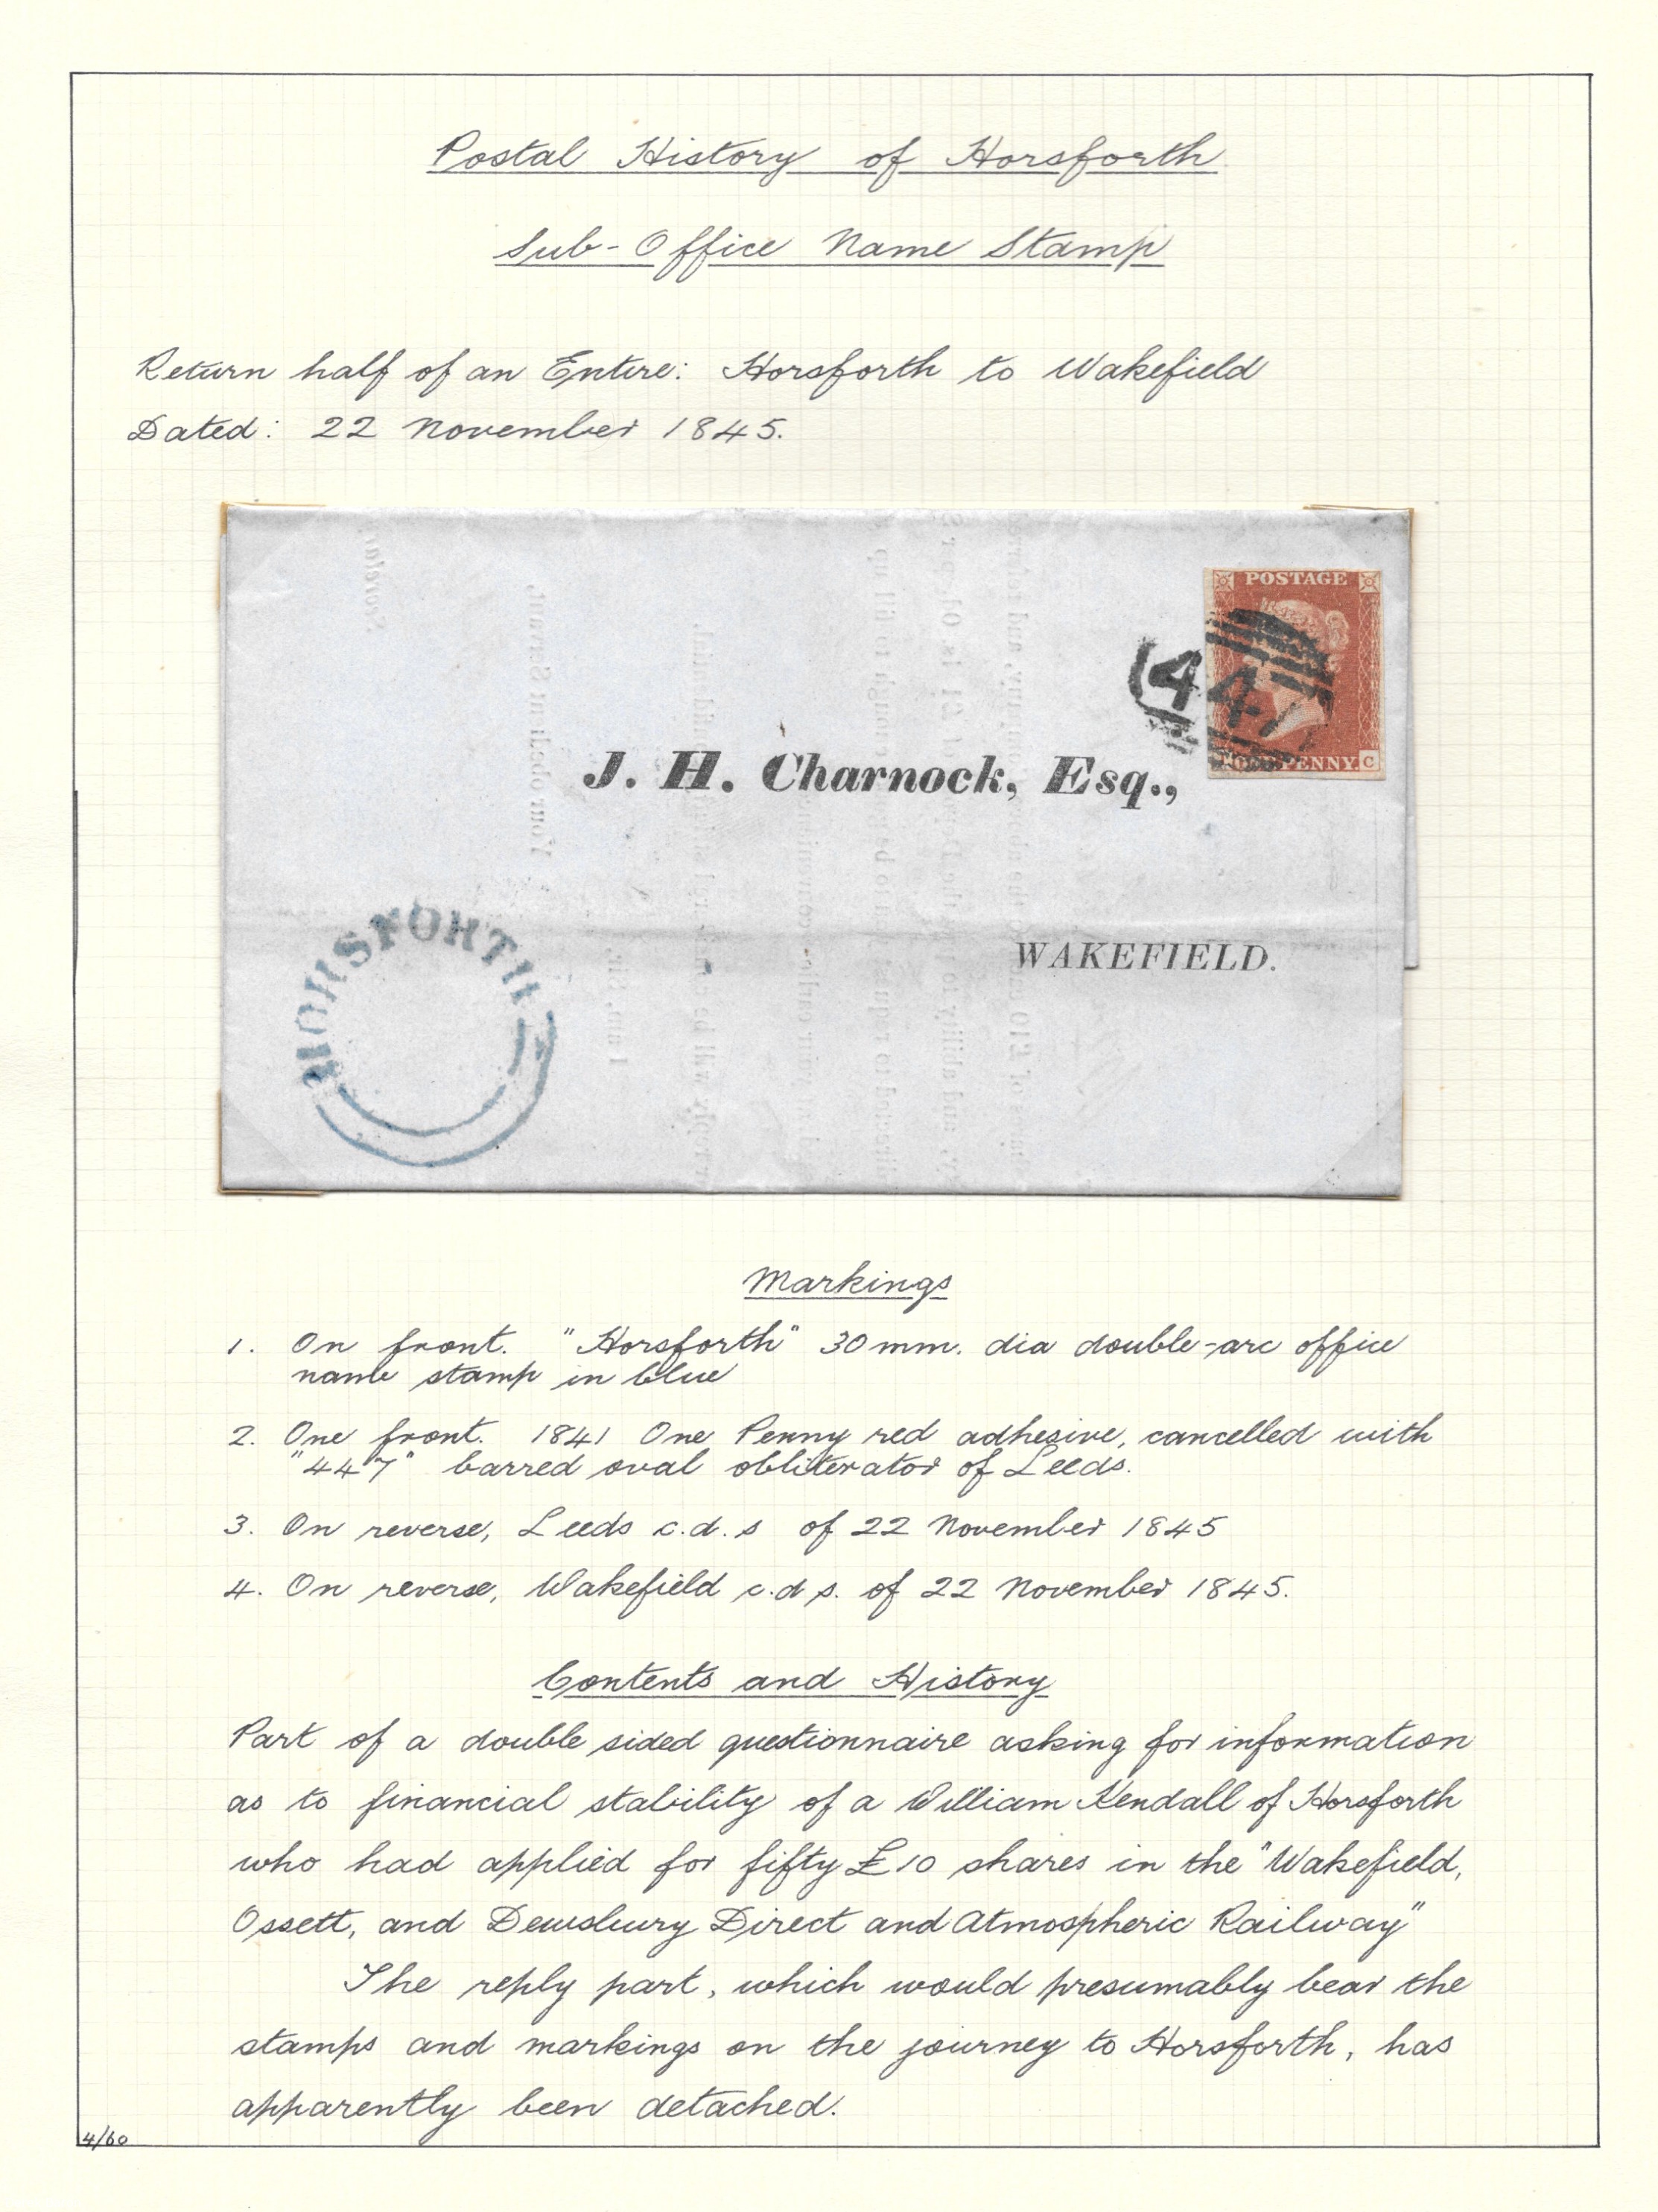 Postal History of Horsforth
Sub-Office Name Stamp
Return half of an Entire: Horsforth to Wakefield
Dated: 22 November 1845.
POSTAGE
447
PENNY. C
J. H. Charnock, Esq.,
WAKEFIELD.
HORSFORTH
Your obedient Servant,
I am, Sir,
Markings
1. On front. "Horsforth" 30mm. dia double-arc office
name stamp in blue
2. One front. 1841 One Penny red adhesive, cancelled with
"447" barred oval obliterator of Leeds.
3. On reverse, Leeds c.d.s of 22 November 1845
4. On reverse, Wakefield c.d s. of 22 November 1845.
Contents and History
Part of a double sided questionnaire asking for information
as to financial stability of a William Kendall of Horsforth
who had applied for fifty £10 shares in the "Wakefield,
Ossett, and Dewsbury Direct and Atmospheric Railway"
The reply part, which would presumably bear the
stamps and markings on the journey to Horsforth, has
apparently been detached.
4/60